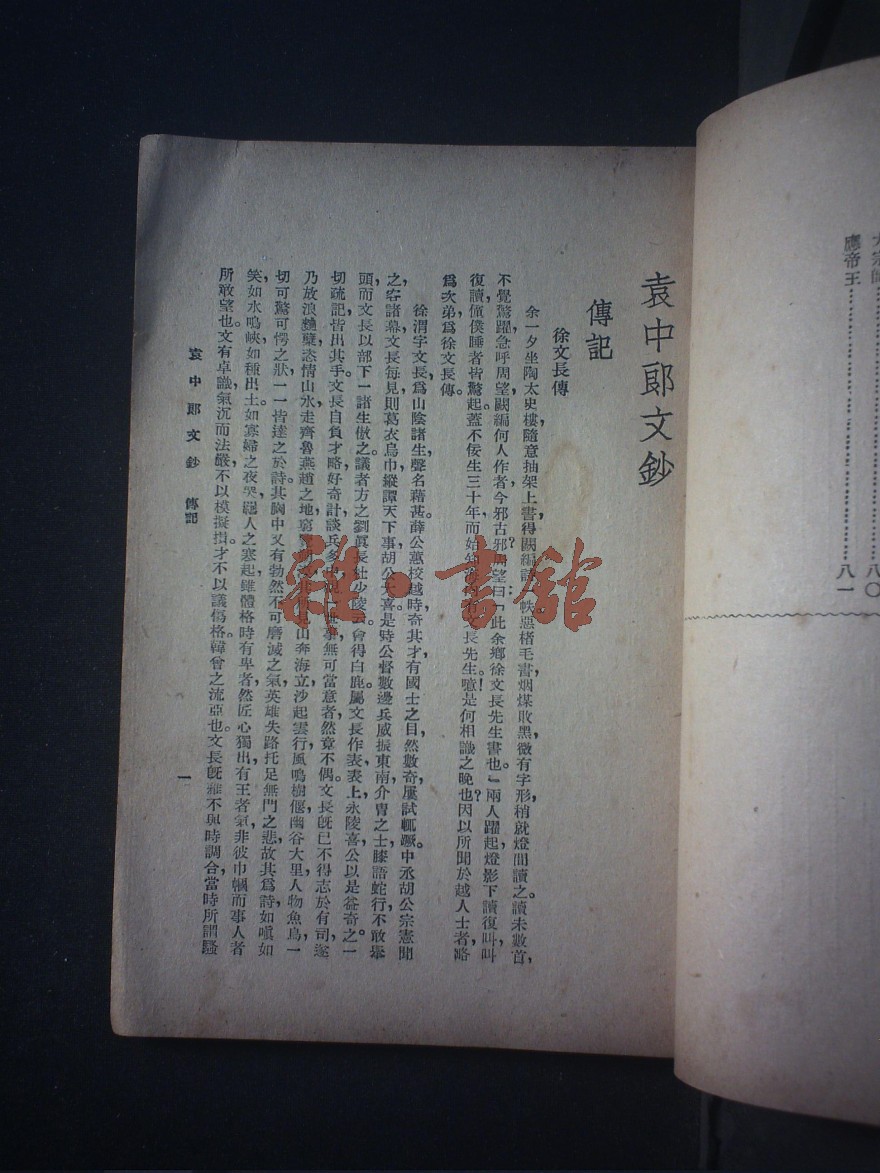 袁中郎文鈔
傳記
徐文長傳
余一夕坐陶太史樓，隨意抽架上書，得闕編詩一帙，惡楮毛書，烟煤敗黑，微有字形，稍就燈間讀之。讀未數首，
不覺驚躍，急呼周望：闕編何人作者？今邪？古邪？周望曰：「此余鄉徐文長先生書也。」兩人躍起，燈影下讀復叫，叫
復讀，僮僕睡者皆驚起。蓋不佞生三十年，而始知海內有文長先生！噫，是何相識之晚也？因以所聞於越人士者，略
爲次第，爲徐文長傳。
徐渭字文長，爲山陰諸生，聲名藉甚。薛公蕙校越時，奇其才，有國士之目，然數奇，屢試輒蹶。中丞胡公宗憲聞
之，客諸幕。文長每見，則葛衣烏巾，縱譚天下事，胡公大喜。是時公督數邊兵，威振東南，介冑之士，膝語蛇行，不敢舉
頭，而文長以部下一諸生傲之，議者方之劉眞長杜少陵云。會得白鹿，屬文長作表，表上，永陵喜，公以是益奇之，一
切疏記，皆出其手。文長自負才略，好奇計，談兵多中，視一世事無可當意者，然竟不偶。文長旣已不得志於有司，遂
乃放浪麯糵，恣情山水，走齊魯燕趙之地，窮覽朔漠，其所見山奔海立，沙起雲行，風鳴樹偃，幽谷大里，人物魚鳥，一
切可驚可愕之狀，一一皆達之於詩。其胸中又有勃然不可磨滅之氣，英雄失路托足無門之悲，故其爲詩，如嗔如
笑，如水鳴峽，如種出土，如寡婦之夜哭，羈人之寒起，雖體格時有卑者，然匠心獨出，有王者氣，非彼巾幗而事人者
所敢望也。文有卓識，氣沉而法嚴，不以模擬損才，不以議傷格，韓曾之流亞也。文長旣雅不與時調合，當時所謂騷
袁中郎文鈔　傳記
一
應帝王……八一
八〇
雜·書館